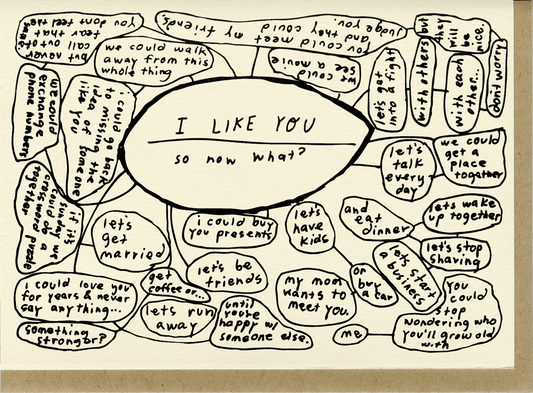 I LIKE YOU
so now what?
we could walk
away from this
whole thing
but never
call out of
fear that
you dont feel the
same
you could meet my friends
and they could
judge you.
we could
see a movie
let's get
into a fight
with others
but
they
will
be
nice.
with each
other...
dont worry
we could
exchange
phone numbers
i could go back
to missing the
idea of someone
like you
if it's
sunday we
could do a
crossword puzzle
together
let's
talk
every
day
we could
get a
place
together
lets
get
married
i could buy
you presents
let's
have
kids
and
eat
dinner
lets wake
up together
let's stop
shaving
let's start
a business
or
buy
a car
my mom
wants to
meet you.
me
you
could
stop
wondering who
you'll grow old
with
let's be
friends
get
coffee or...
i could love you
for years & never
say anything...
something
stronger?
lets run
away
until
you're
happy w/
someone else.